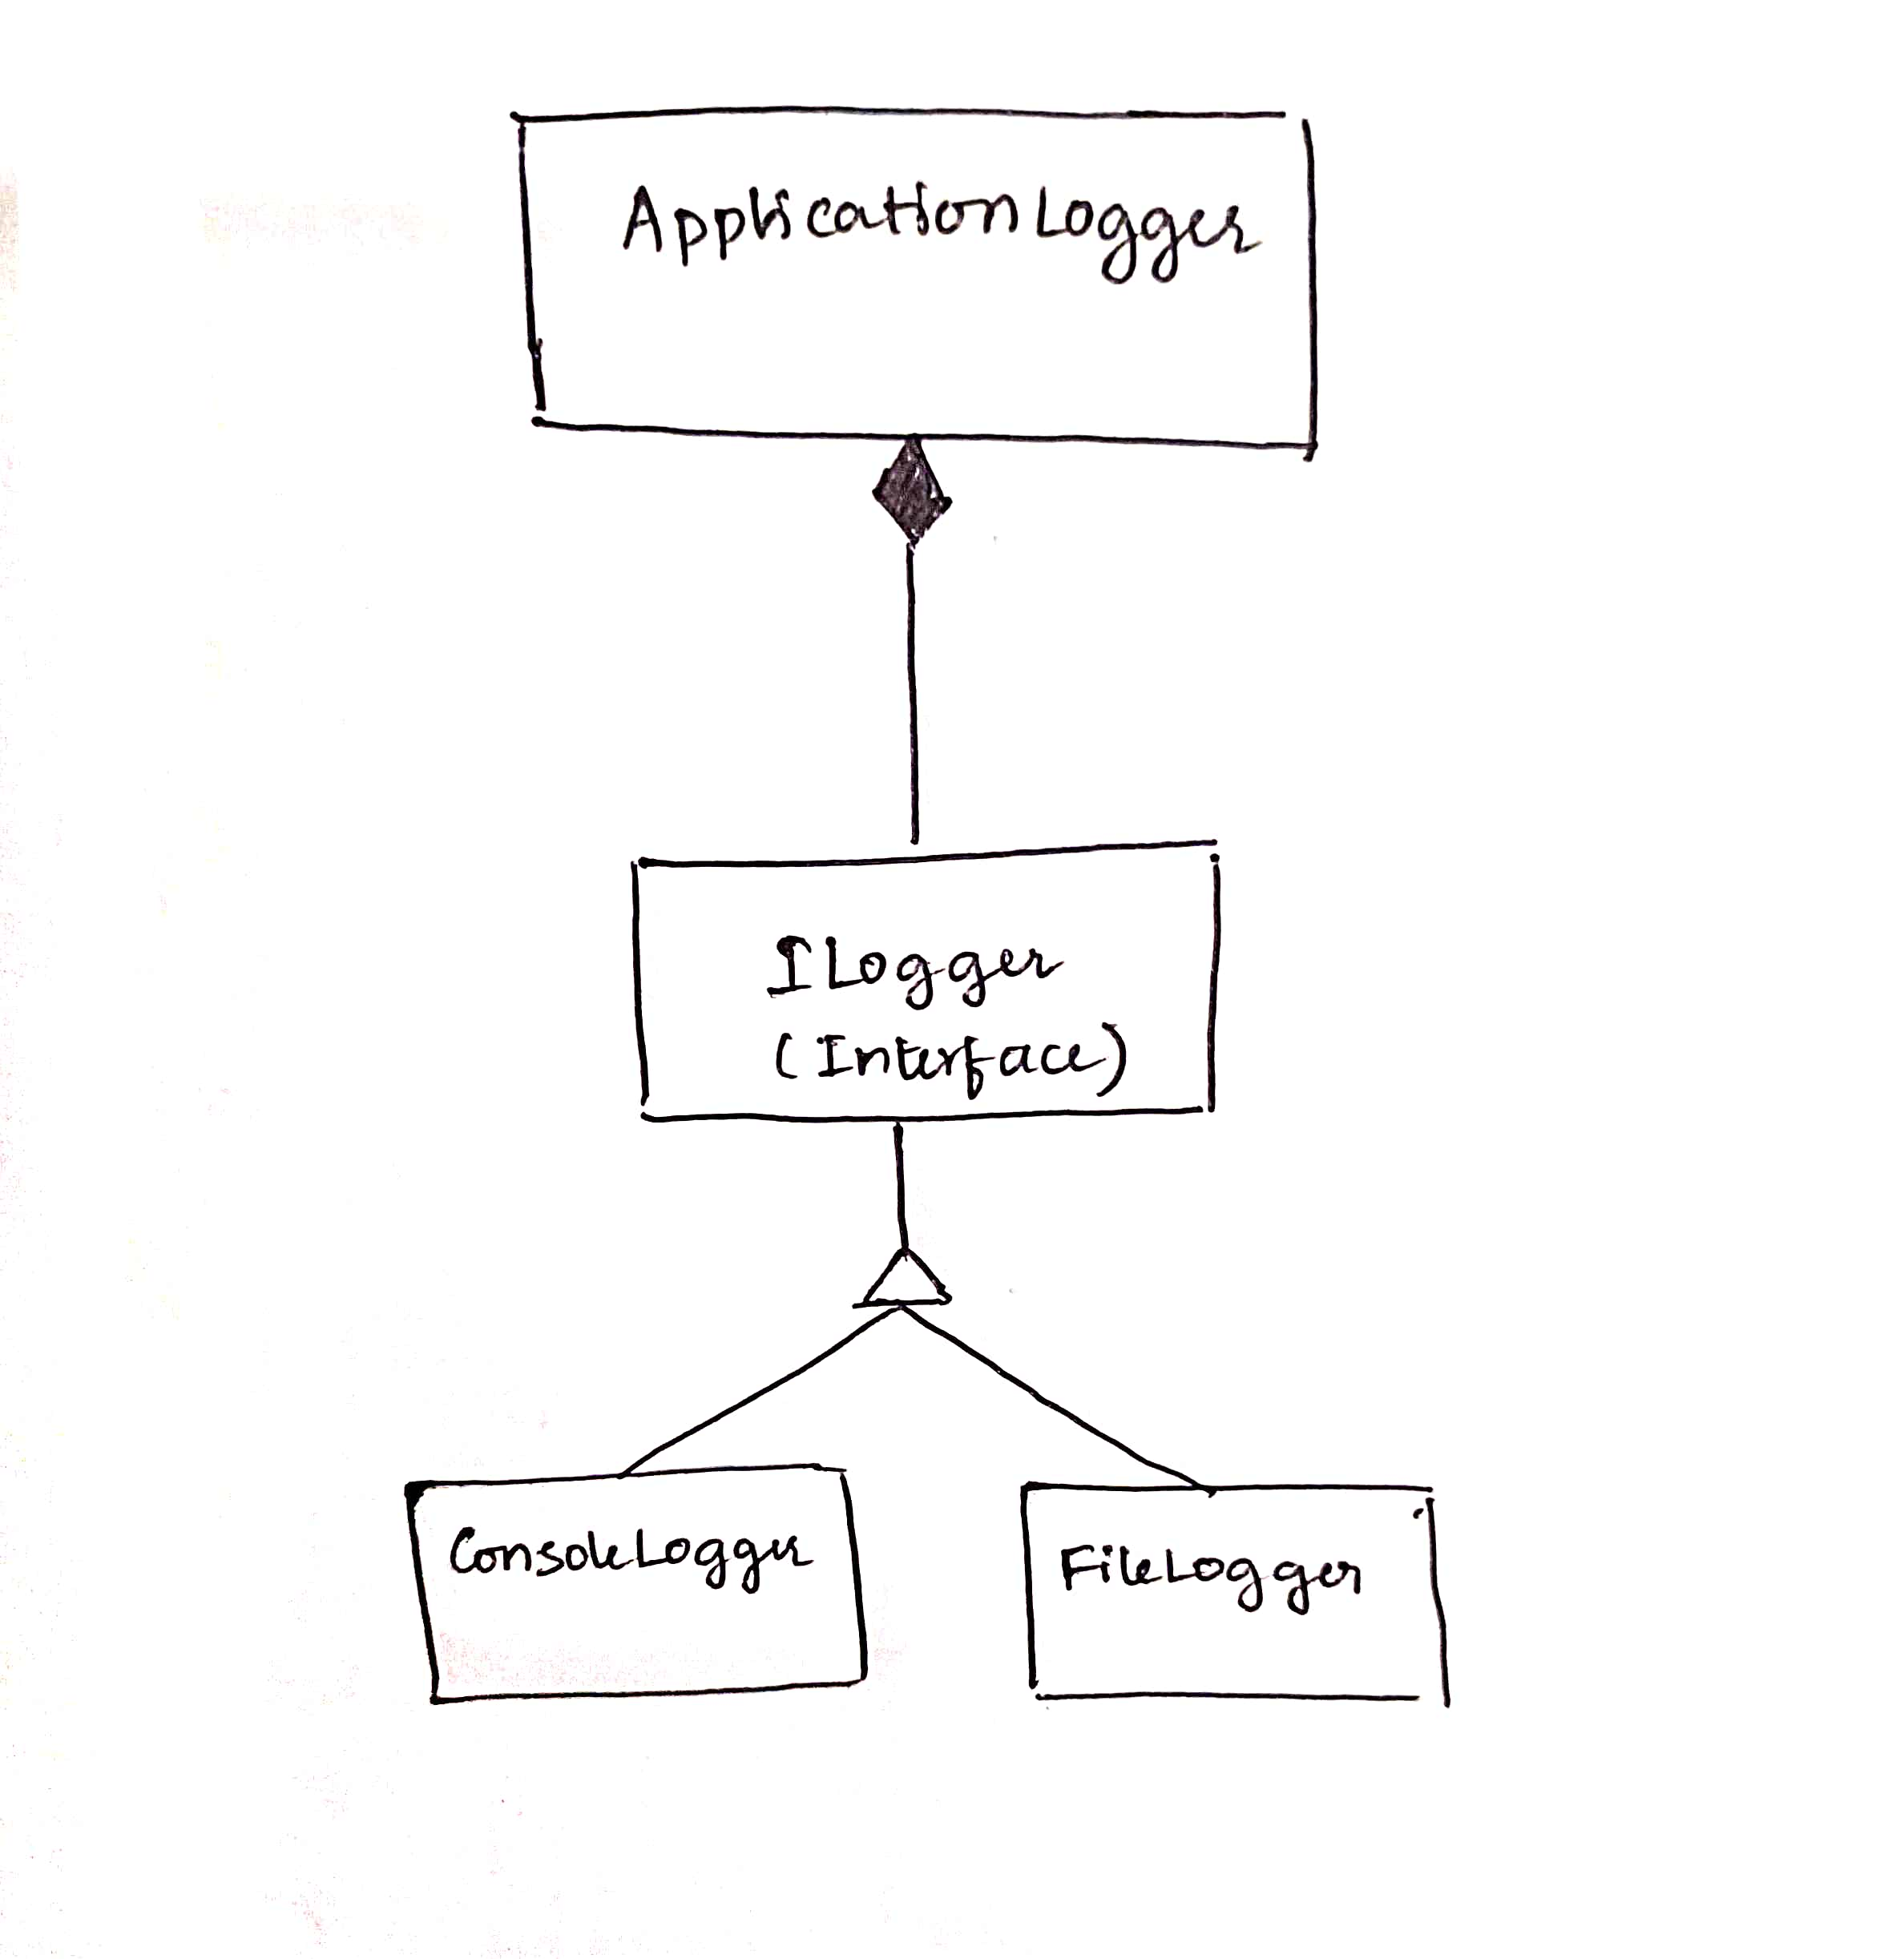 ApplicationLogger
ILogger
(Interface)
ConsoleLogger
FileLogger